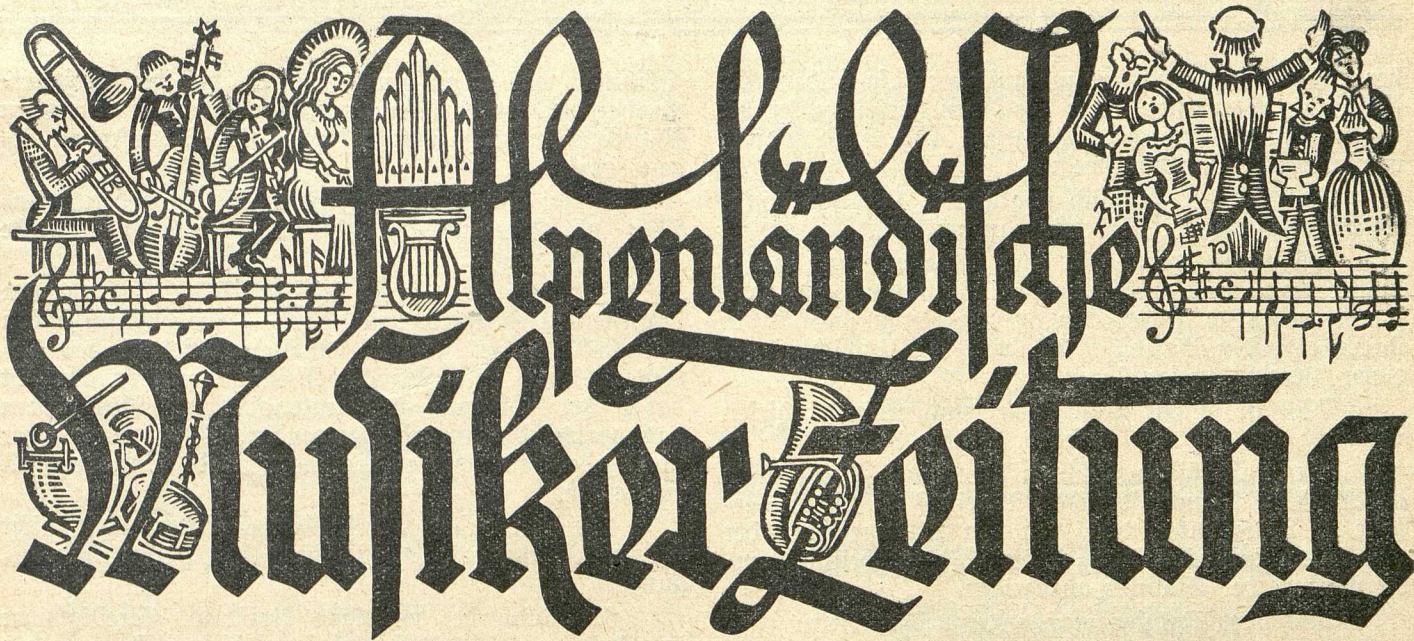 Alpenländische
Musiker Zeitung